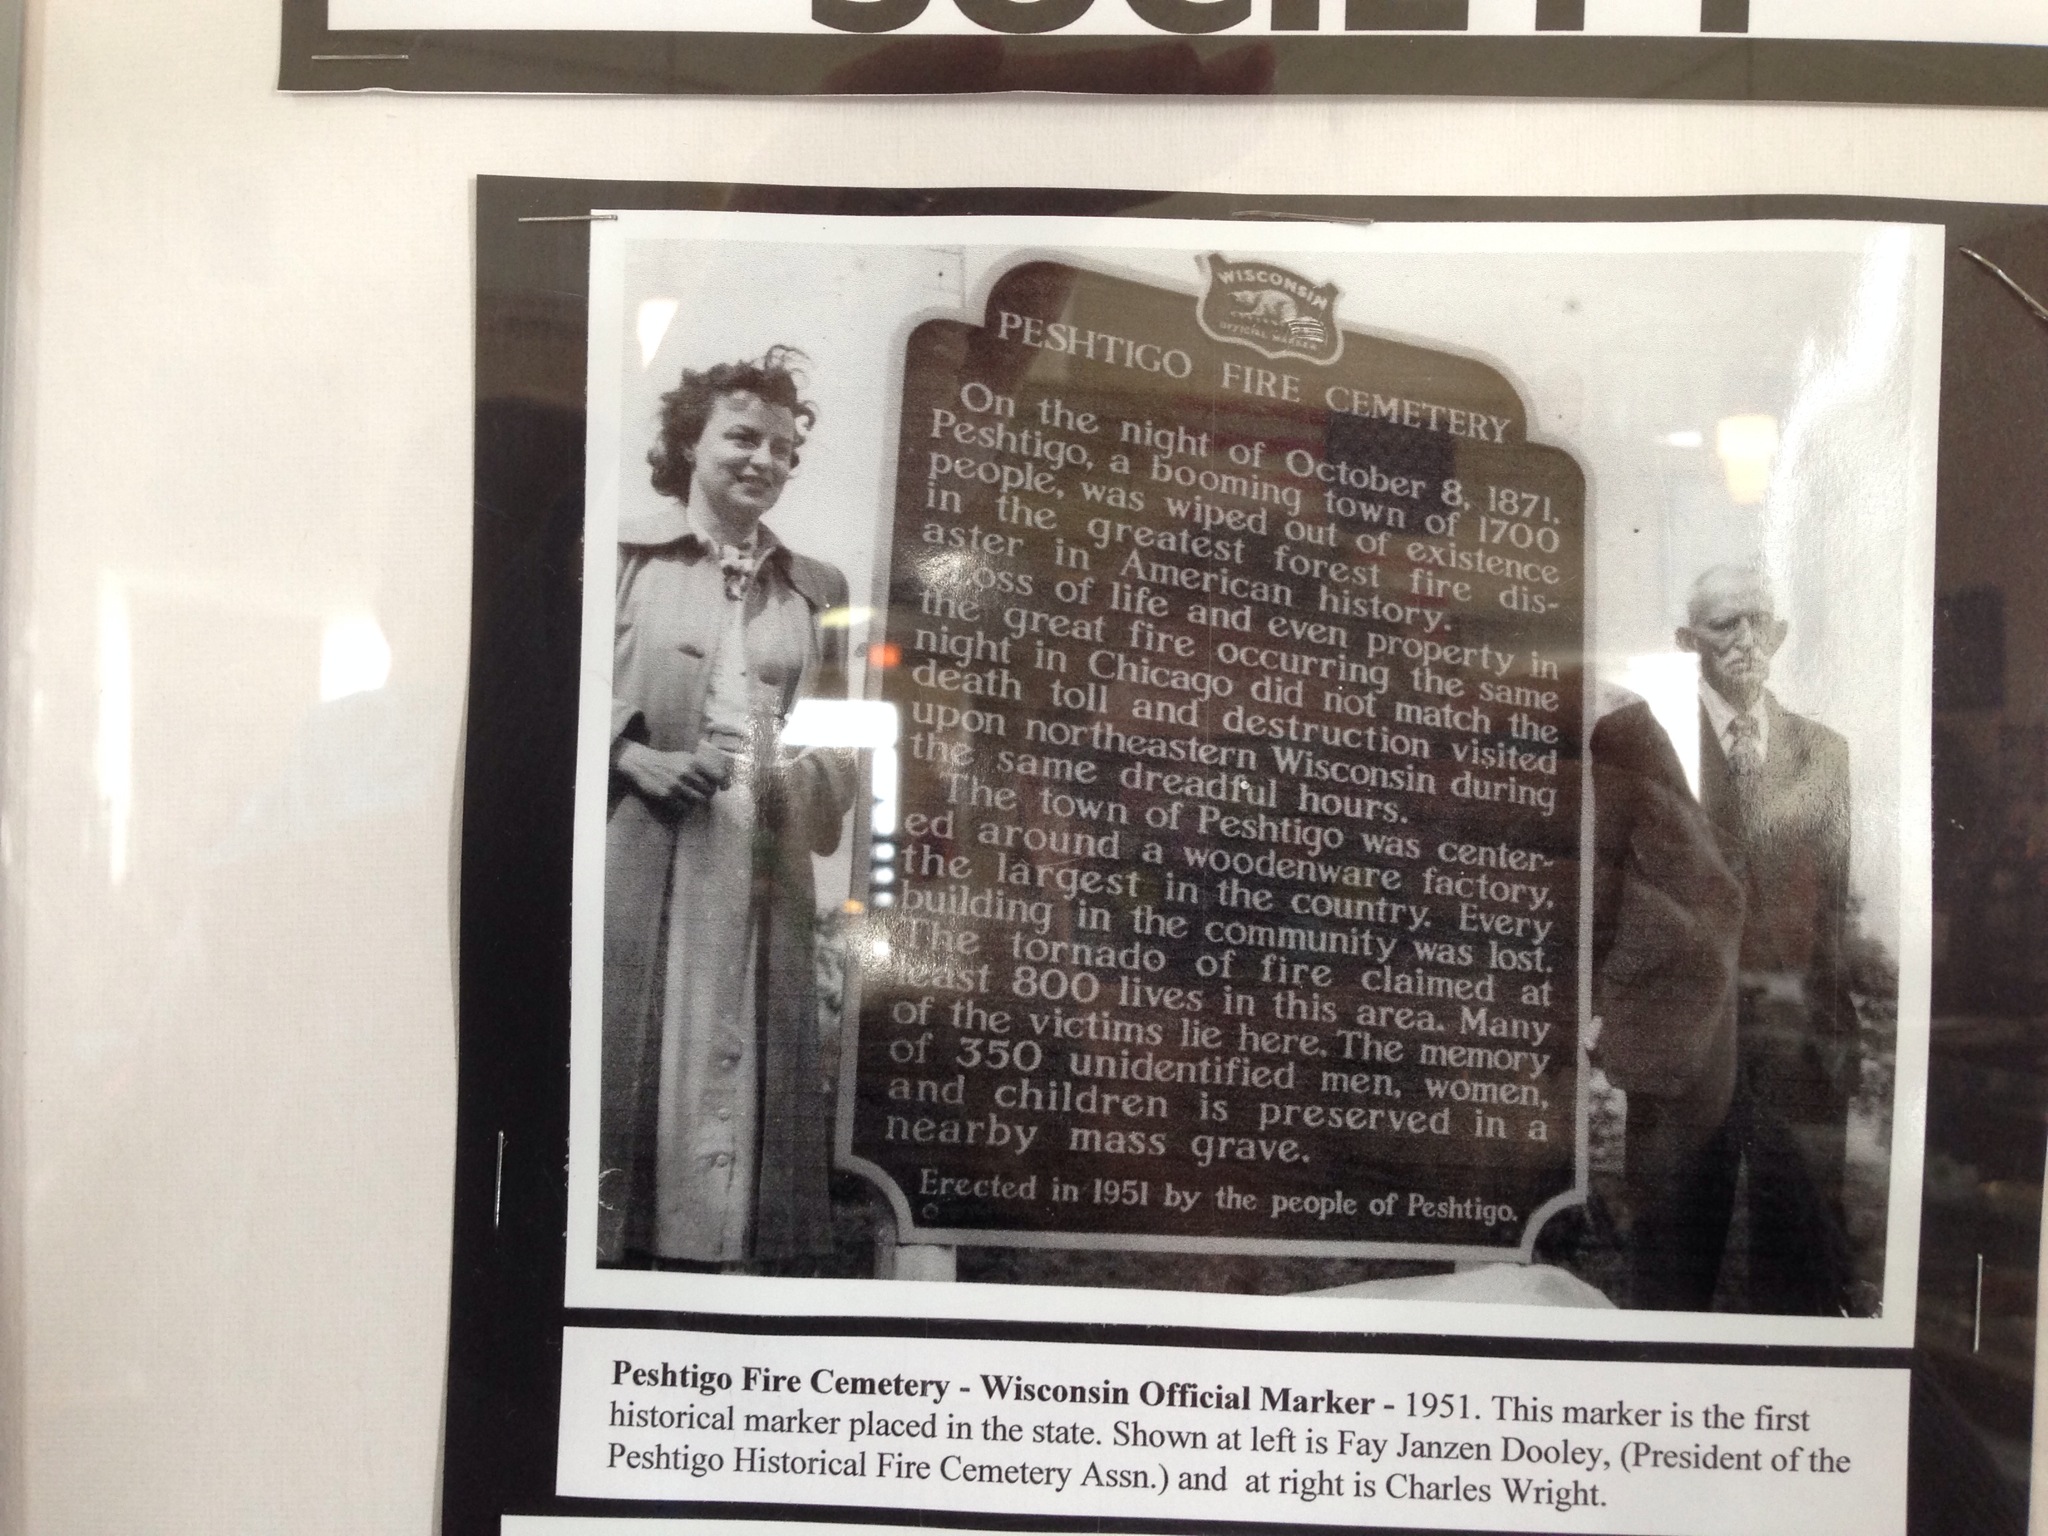 SOCIETY
WISCONSIN
OFFICIAL MARKER
PESHTIGO FIRE CEMETERY
On the night of October 8, 1871,
Peshtigo, a booming town of 1700
people, was wiped out of existence
in the greatest forest fire dis-
aster in American history.
Loss of life and even property in
the great fire occurring the same
night in Chicago did not match the
death toll and destruction visited
upon northeastern Wisconsin during
the same dreadful hours.
The town of Peshtigo was center-
ed around a woodenware factory,
the largest in the country. Every
building in the community was lost.
The tornado of fire claimed at
least 800 lives in this area. Many
of the victims lie here. The memory
of 350 unidentified men, women,
and children is preserved in a
nearby mass grave.
Erected in 1951 by the people of Peshtigo.
Peshtigo Fire Cemetery - Wisconsin Official Marker - 1951. This marker is the first
historical marker placed in the state. Shown at left is Fay Janzen Dooley, (President of the
Peshtigo Historical Fire Cemetery Assn.) and at right is Charles Wright.